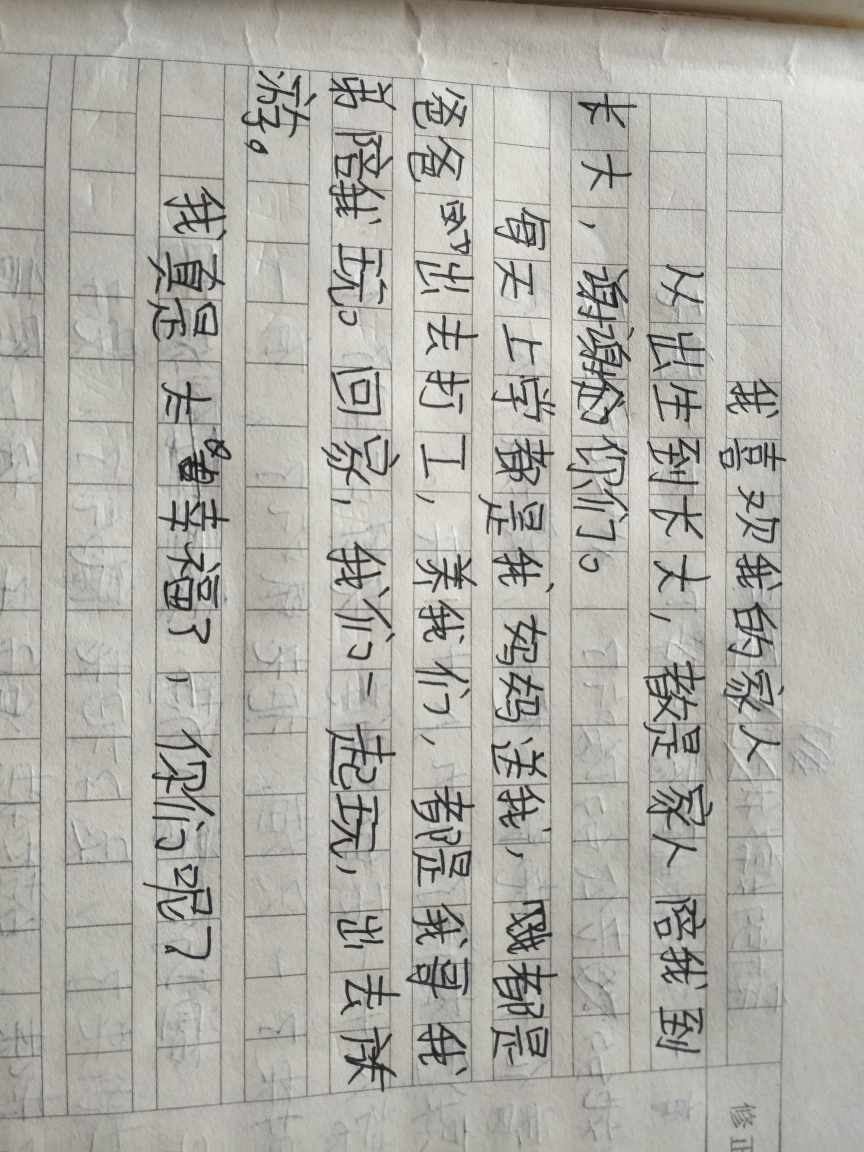 我喜欢我的家人
从出生到长大，都是家人陪我到
长大，谢谢你们。
每天上学都是我妈妈送我，哦都是
爸爸出去打工，养我们，都是我哥我
弟陪我玩。回家，我们一起玩，出去旅
游。
我真是太幸福了，你们呢？
修正